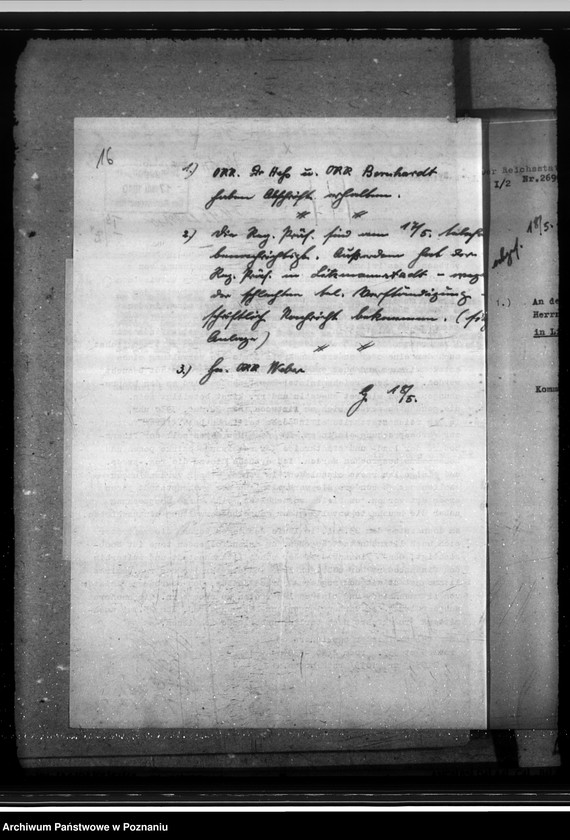 16
1.) ORR. Dr Hehs u. ORR Bernhardt
haben Abschrift erhalten.
2.) Die Reg. Präs. sind am 17/5.
benachrichtigt. Außerdem hat der
Reg. Präs. in Litzmannstadt -
der schlechten tel. Verständigung -
schriftlich Nachricht bekommen.
Anlage)
3.) Hn. ORR Weber
G. 18/5.
Reichsstat
I/2 Nr.269
18/5.
1.) An de
Herrn
in Li
Komm
Archiwum Państwowe w Poznaniu